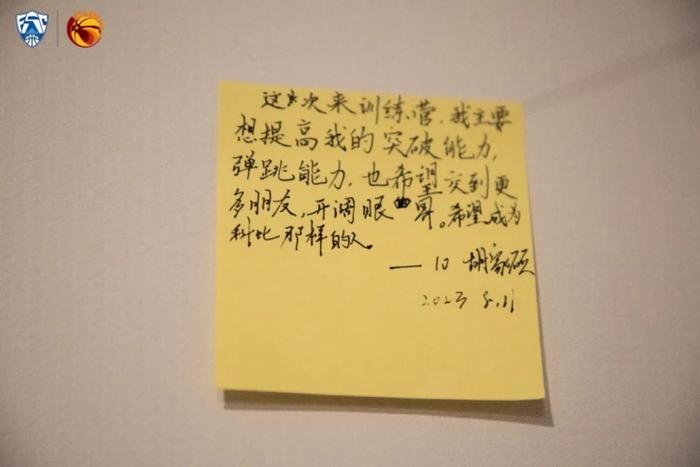 这次来训练营,我主要
想提高我的突破能力,
弹跳能力,也希望交到更
多朋友,开阔眼界。希望成为
科比那样的人。
—10 胡家硕
2023 8.11